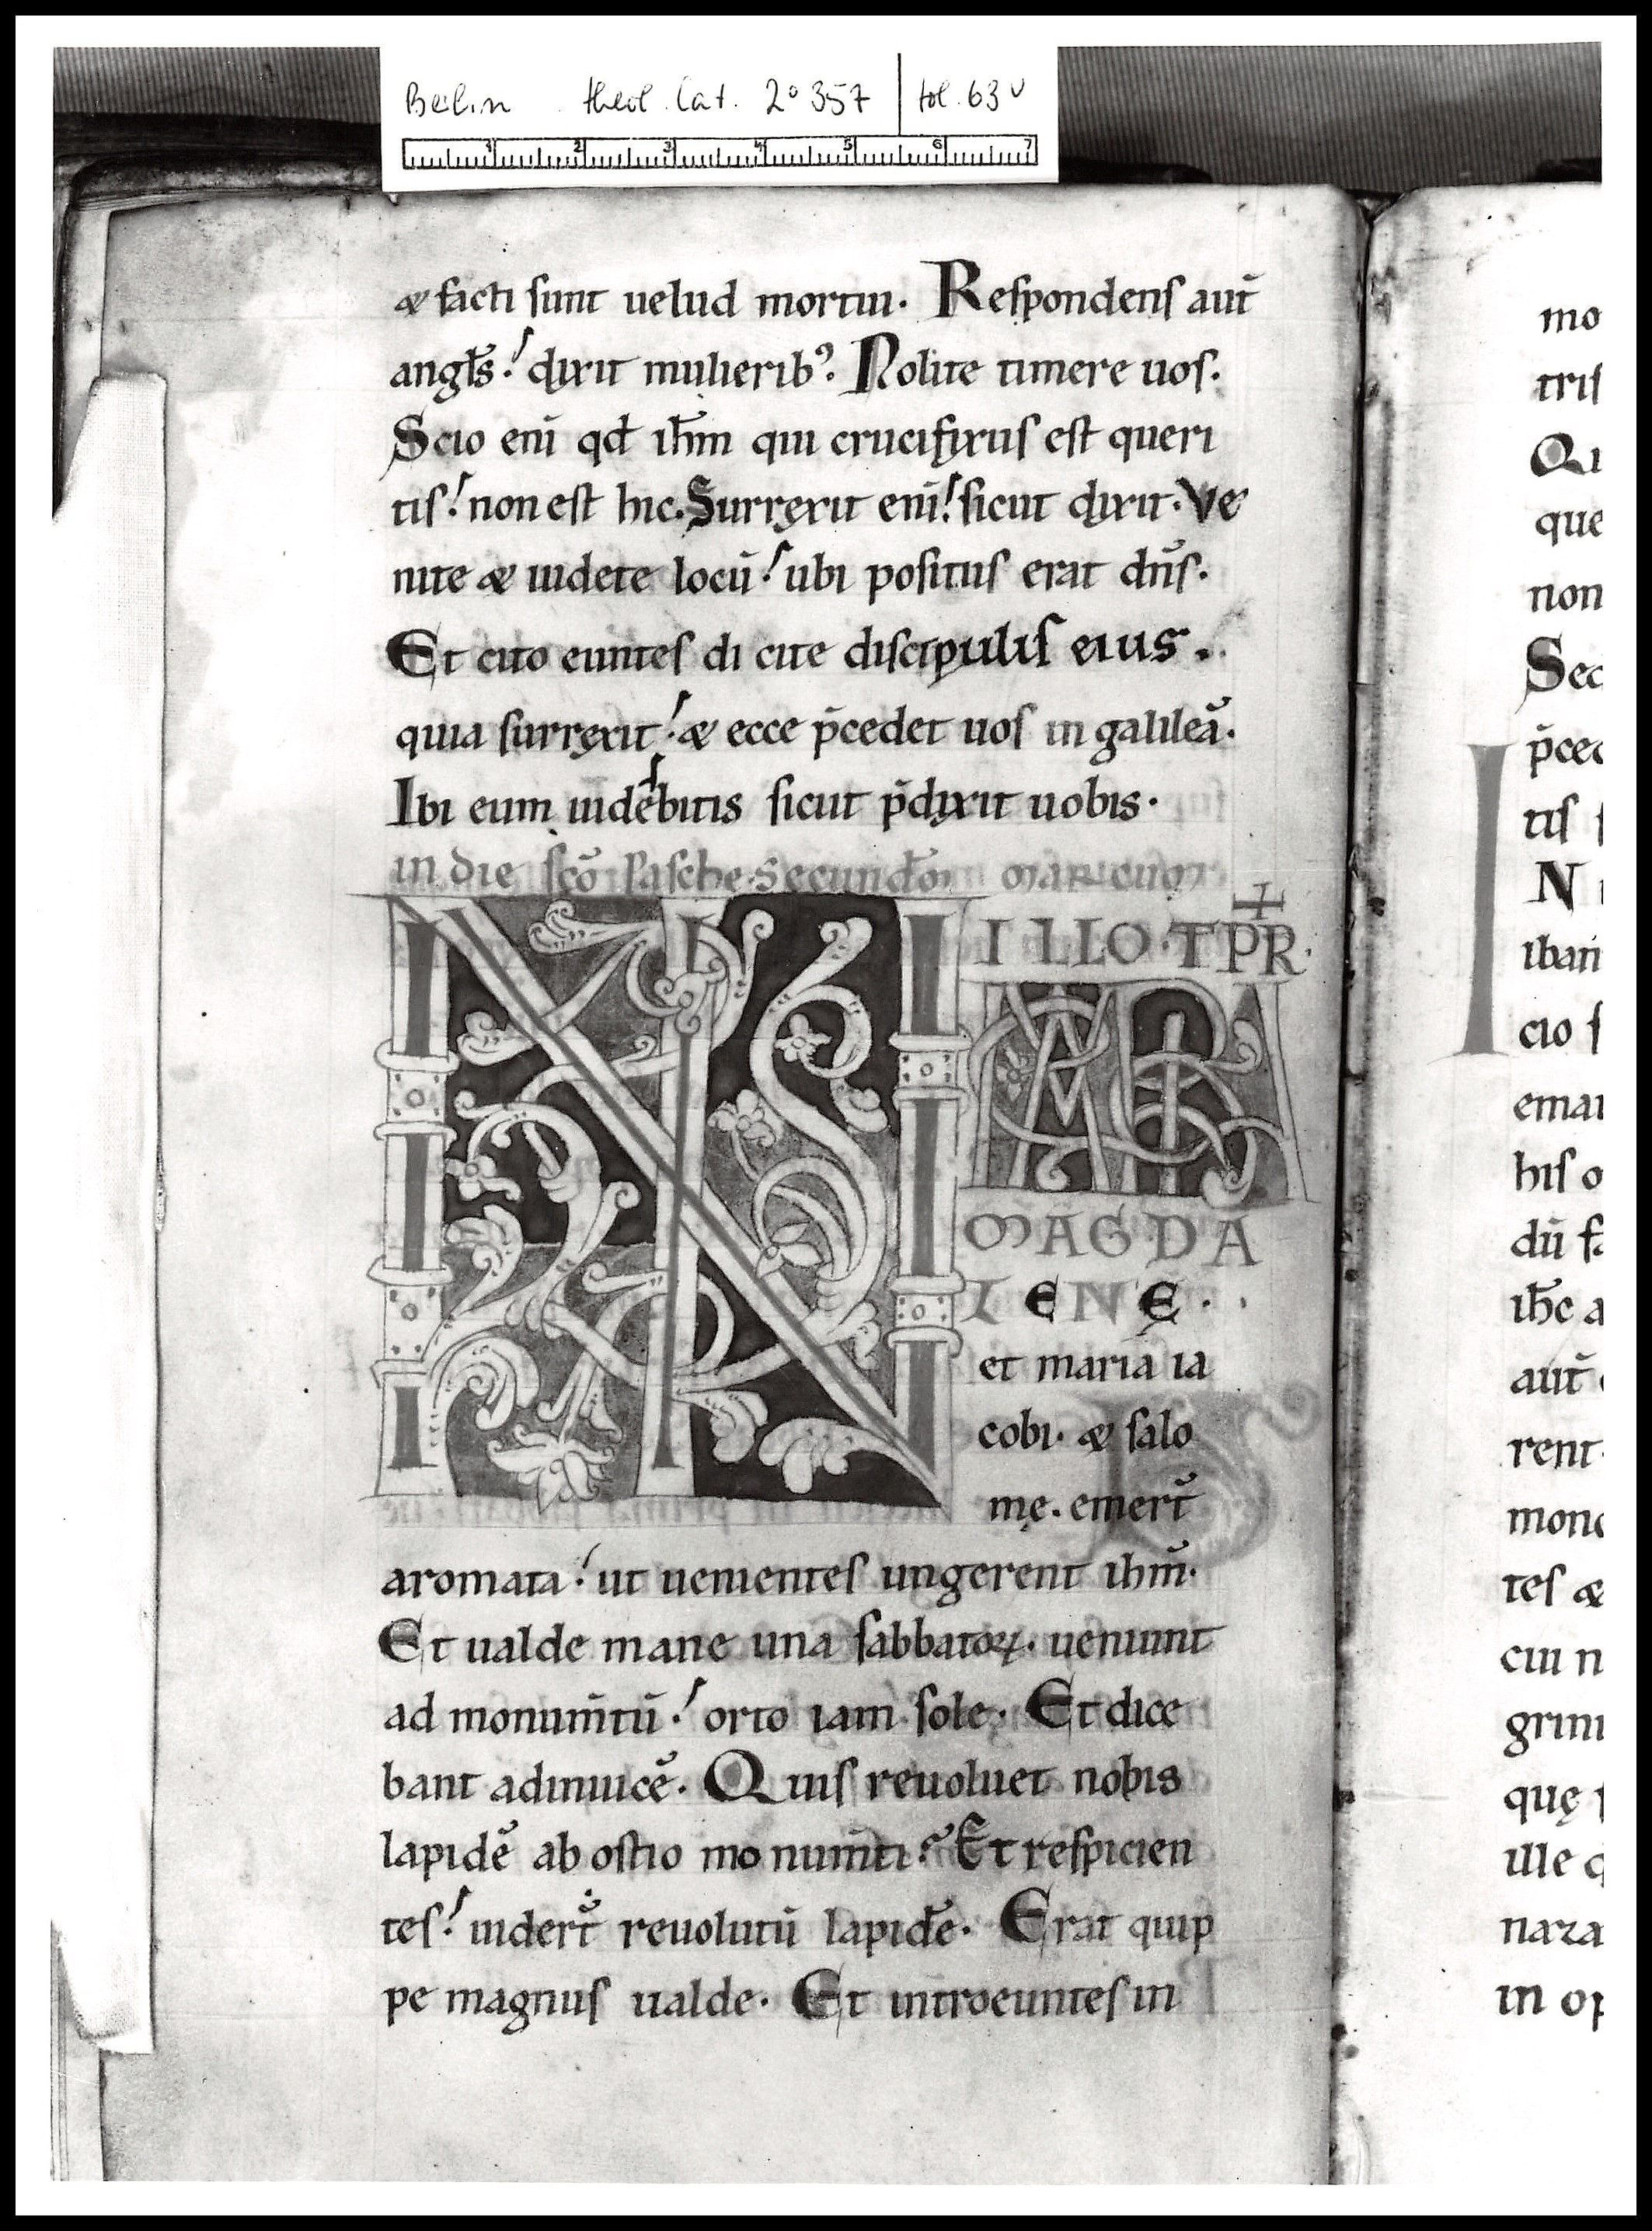 Berlin theol. Lat. 2° 357 fol. 63v
1 2 3 4 5 6 7
& facti sunt uelud mortui. Respondens aut̄
angl̄s. dixit mulierib⁹. Nolite timere uos.
Scio eni qd̄ ih̄m qui crucifixus est queri
tis. non est hic. Surrexit eni. sicut dixit. Ve
nite & uidete locū. ubi positus erat dn̄s.
Et cito euntes di cite discipulis eius.
quia surrexit. & ecce p̄cedet uos in galileā.
Ibi eum uidebitis sicut p̄dixit uobis.
in die sc̄o pasche. Secundm̄ marcum
N I LLO. TPR.
MARIA
MAGDA
LENE.
et maria ia
cobi. & salo
mę. emert̄
aromata. ut uenientes ungerent ihm̄.
Et ualde mane una sabbatoꝝ. ueniunt
ad monum̄tū. orto iam sole. Et dice
bant adinuicē. Quis reuoluet nobis
lapidē ab ostio monum̄ti? Et respicien
tes. uidert̄ reuolutū lapidē. Erat quip
pe magnus ualde. Et introeuntes in
mo
tris
Qi
que
non
Sed
p̄ced
tis
I N
iban
cio
emat
his o
dū fa
ih̄c a
aut̄
rent
mono
tes &
cui n
grini
quę
ille q
naza
in op